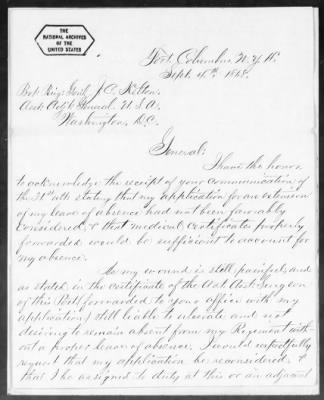 THE
NATIONAL ARCHIVES
OF THE
UNITED STATES
Fort Columbus N.Y.H.
Sept. 4th 1868.
Bvt. Brig. Genl. J. C. Kelton.
Asst. Adjt. General. U.S.A.
Washington, D.C.
General:
I have the honor
to acknowledge the receipt of your communication of
the 31st ult. stating that my application for an extension
of my leave of absence had not been favorably
considered, & that medical certificates properly
forwarded would be sufficient to account for
my absence.
As my wound is still painful, and
as stated in the certificate of the Asst. Surgeon
of this Post (forwarded to your office with my
application) still liable to ulcerate and not
desiring to remain absent from my Regiment with-
out a proper leave of absence. I would respectfully
request that my application be reconsidered &
that I be assigned to duty at this or an adjacent